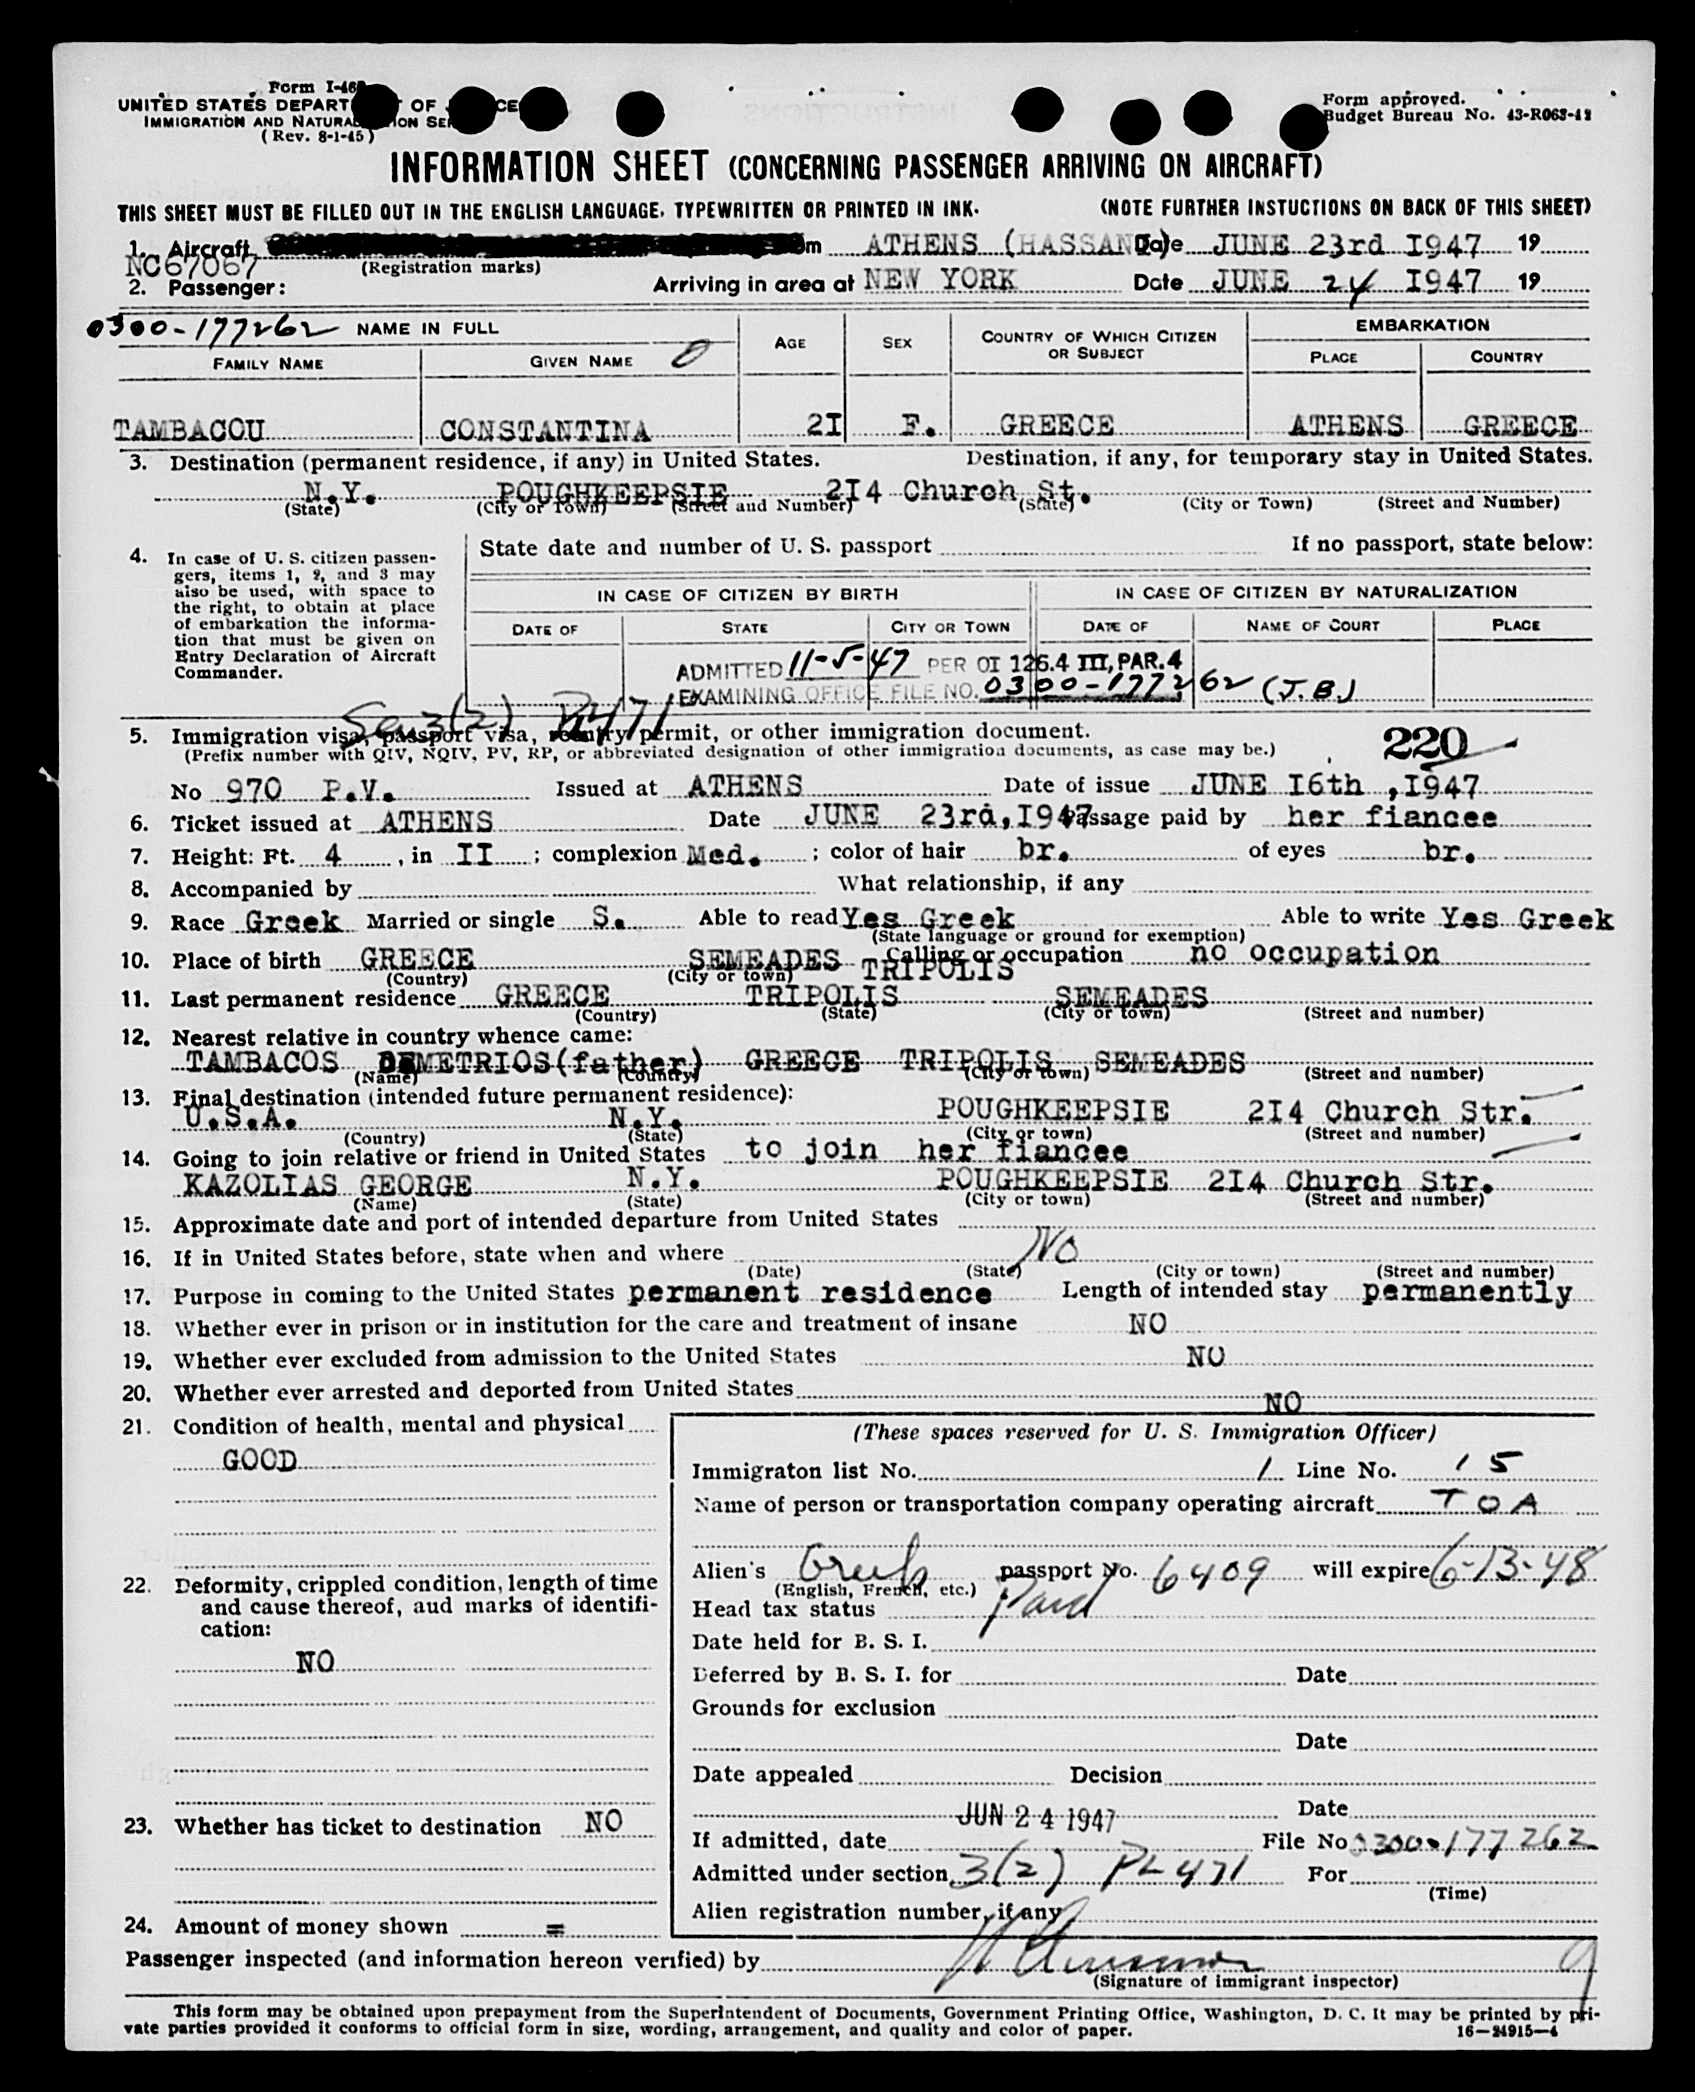 Form I-46
UNITED STATES DEPART OF JCE
IMMIGRATION AND NATURA ION SE
(Rev. 8-1-45)
Form approved.
Budget Bureau No. 43-R068-42
INFORMATION SHEET (CONCERNING PASSENGER ARRIVING ON AIRCRAFT)
THIS SHEET MUST BE FILLED OUT IN THE ENGLISH LANGUAGE, TYPEWRITTEN OR PRINTED IN INK. (NOTE FURTHER INSTUCTIONS ON BACK OF THIS SHEET)
1. Aircraft m ATHENS (HASSAN) Date JUNE 23rd I947 19
NC67067 (Registration marks)
2. Passenger: Arriving in area at NEW YORK Date JUNE 24 I947 19
0300-177262 NAME IN FULL AGE SEX COUNTRY OF WHICH CITIZEN OR SUBJECT EMBARKATION
FAMILY NAME GIVEN NAME PLACE COUNTRY
TAMBACOU CONSTANTINA 2I F. GREECE ATHENS GREECE
3. Destination (permanent residence, if any) in United States. Destination, if any, for temporary stay in United States.
N.Y. POUGHKEEPSIE 2I4 Church St.
(State) (City or Town) (Street and Number) (State) (City or Town) (Street and Number)
4. In case of U. S. citizen passen-
gers, items 1, 2, and 3 may
also be used, with space to
the right, to obtain at place
of embarkation the informa-
tion that must be given on
Entry Declaration of Aircraft
Commander.
State date and number of U. S. passport If no passport, state below:
IN CASE OF CITIZEN BY BIRTH IN CASE OF CITIZEN BY NATURALIZATION
DATE OF STATE CITY OR TOWN DATE OF NAME OF COURT PLACE
ADMITTED 11-5-47 PER OI 126.4 III, PAR. 4
EXAMINING OFFICE FILE NO. 0300-177262 (J.B.)
Sec 3(2) PL 471
5. Immigration visa, passport visa, reentry permit, or other immigration document. 220
(Prefix number with QIV, NQIV, PV, RP, or abbreviated designation of other immigration documents, as case may be.)
No 970 P.V. Issued at ATHENS Date of issue JUNE I6th ,I947
6. Ticket issued at ATHENS Date JUNE 23rd,I947 Passage paid by her fiancee
7. Height: Ft. 4 , in II ; complexion Med. ; color of hair br. of eyes br.
8. Accompanied by What relationship, if any
9. Race Greek Married or single S. Able to read Yes Greek Able to write Yes Greek
(State language or ground for exemption)
10. Place of birth GREECE SEMEADES TRIPOLIS Calling or occupation no occupation
(Country) (City or town)
11. Last permanent residence GREECE TRIPOLIS SEMEADES
(Country) (State) (City or town) (Street and number)
12. Nearest relative in country whence came:
TAMBACOS DEMETRIOS(father) GREECE TRIPOLIS SEMEADES
(Name) (Country) (City or town) (Street and number)
13. Final destination (intended future permanent residence):
U.S.A. N.Y. POUGHKEEPSIE 2I4 Church Str.
(Country) (State) (City or town) (Street and number)
14. Going to join relative or friend in United States to join her fiancee
KAZOLIAS GEORGE N.Y. POUGHKEEPSIE 2I4 Church Str.
(Name) (State) (City or town) (Street and number)
15. Approximate date and port of intended departure from United States
16. If in United States before, state when and where No
(Date) (State) (City or town) (Street and number)
17. Purpose in coming to the United States permanent residence Length of intended stay permanently
18. Whether ever in prison or in institution for the care and treatment of insane NO
19. Whether ever excluded from admission to the United States NO
20. Whether ever arrested and deported from United States NO
21. Condition of health, mental and physical
GOOD
22. Deformity, crippled condition, length of time
and cause thereof, aud marks of identifi-
cation:
NO
23. Whether has ticket to destination NO
24. Amount of money shown =
(These spaces reserved for U. S. Immigration Officer)
Immigraton list No. 1 Line No. 15
Name of person or transportation company operating aircraft TOA
Alien's Greek passport No. 6409 will expire 6-13-48
(English, French, etc.)
Head tax status Paid
Date held for B. S. I.
Deferred by B. S. I. for Date
Grounds for exclusion
Date
Date appealed Decision
JUN 24 1947 Date
If admitted, date File No 0300-177262
Admitted under section 3(2) PL 471 For
(Time)
Alien registration number, if any
Passenger inspected (and information hereon verified) by
(Signature of immigrant inspector)
This form may be obtained upon prepayment from the Superintendent of Documents, Government Printing Office, Washington, D. C. It may be printed by pri-
vate parties provided it conforms to official form in size, wording, arrangement, and quality and color of paper. 16—24915—4